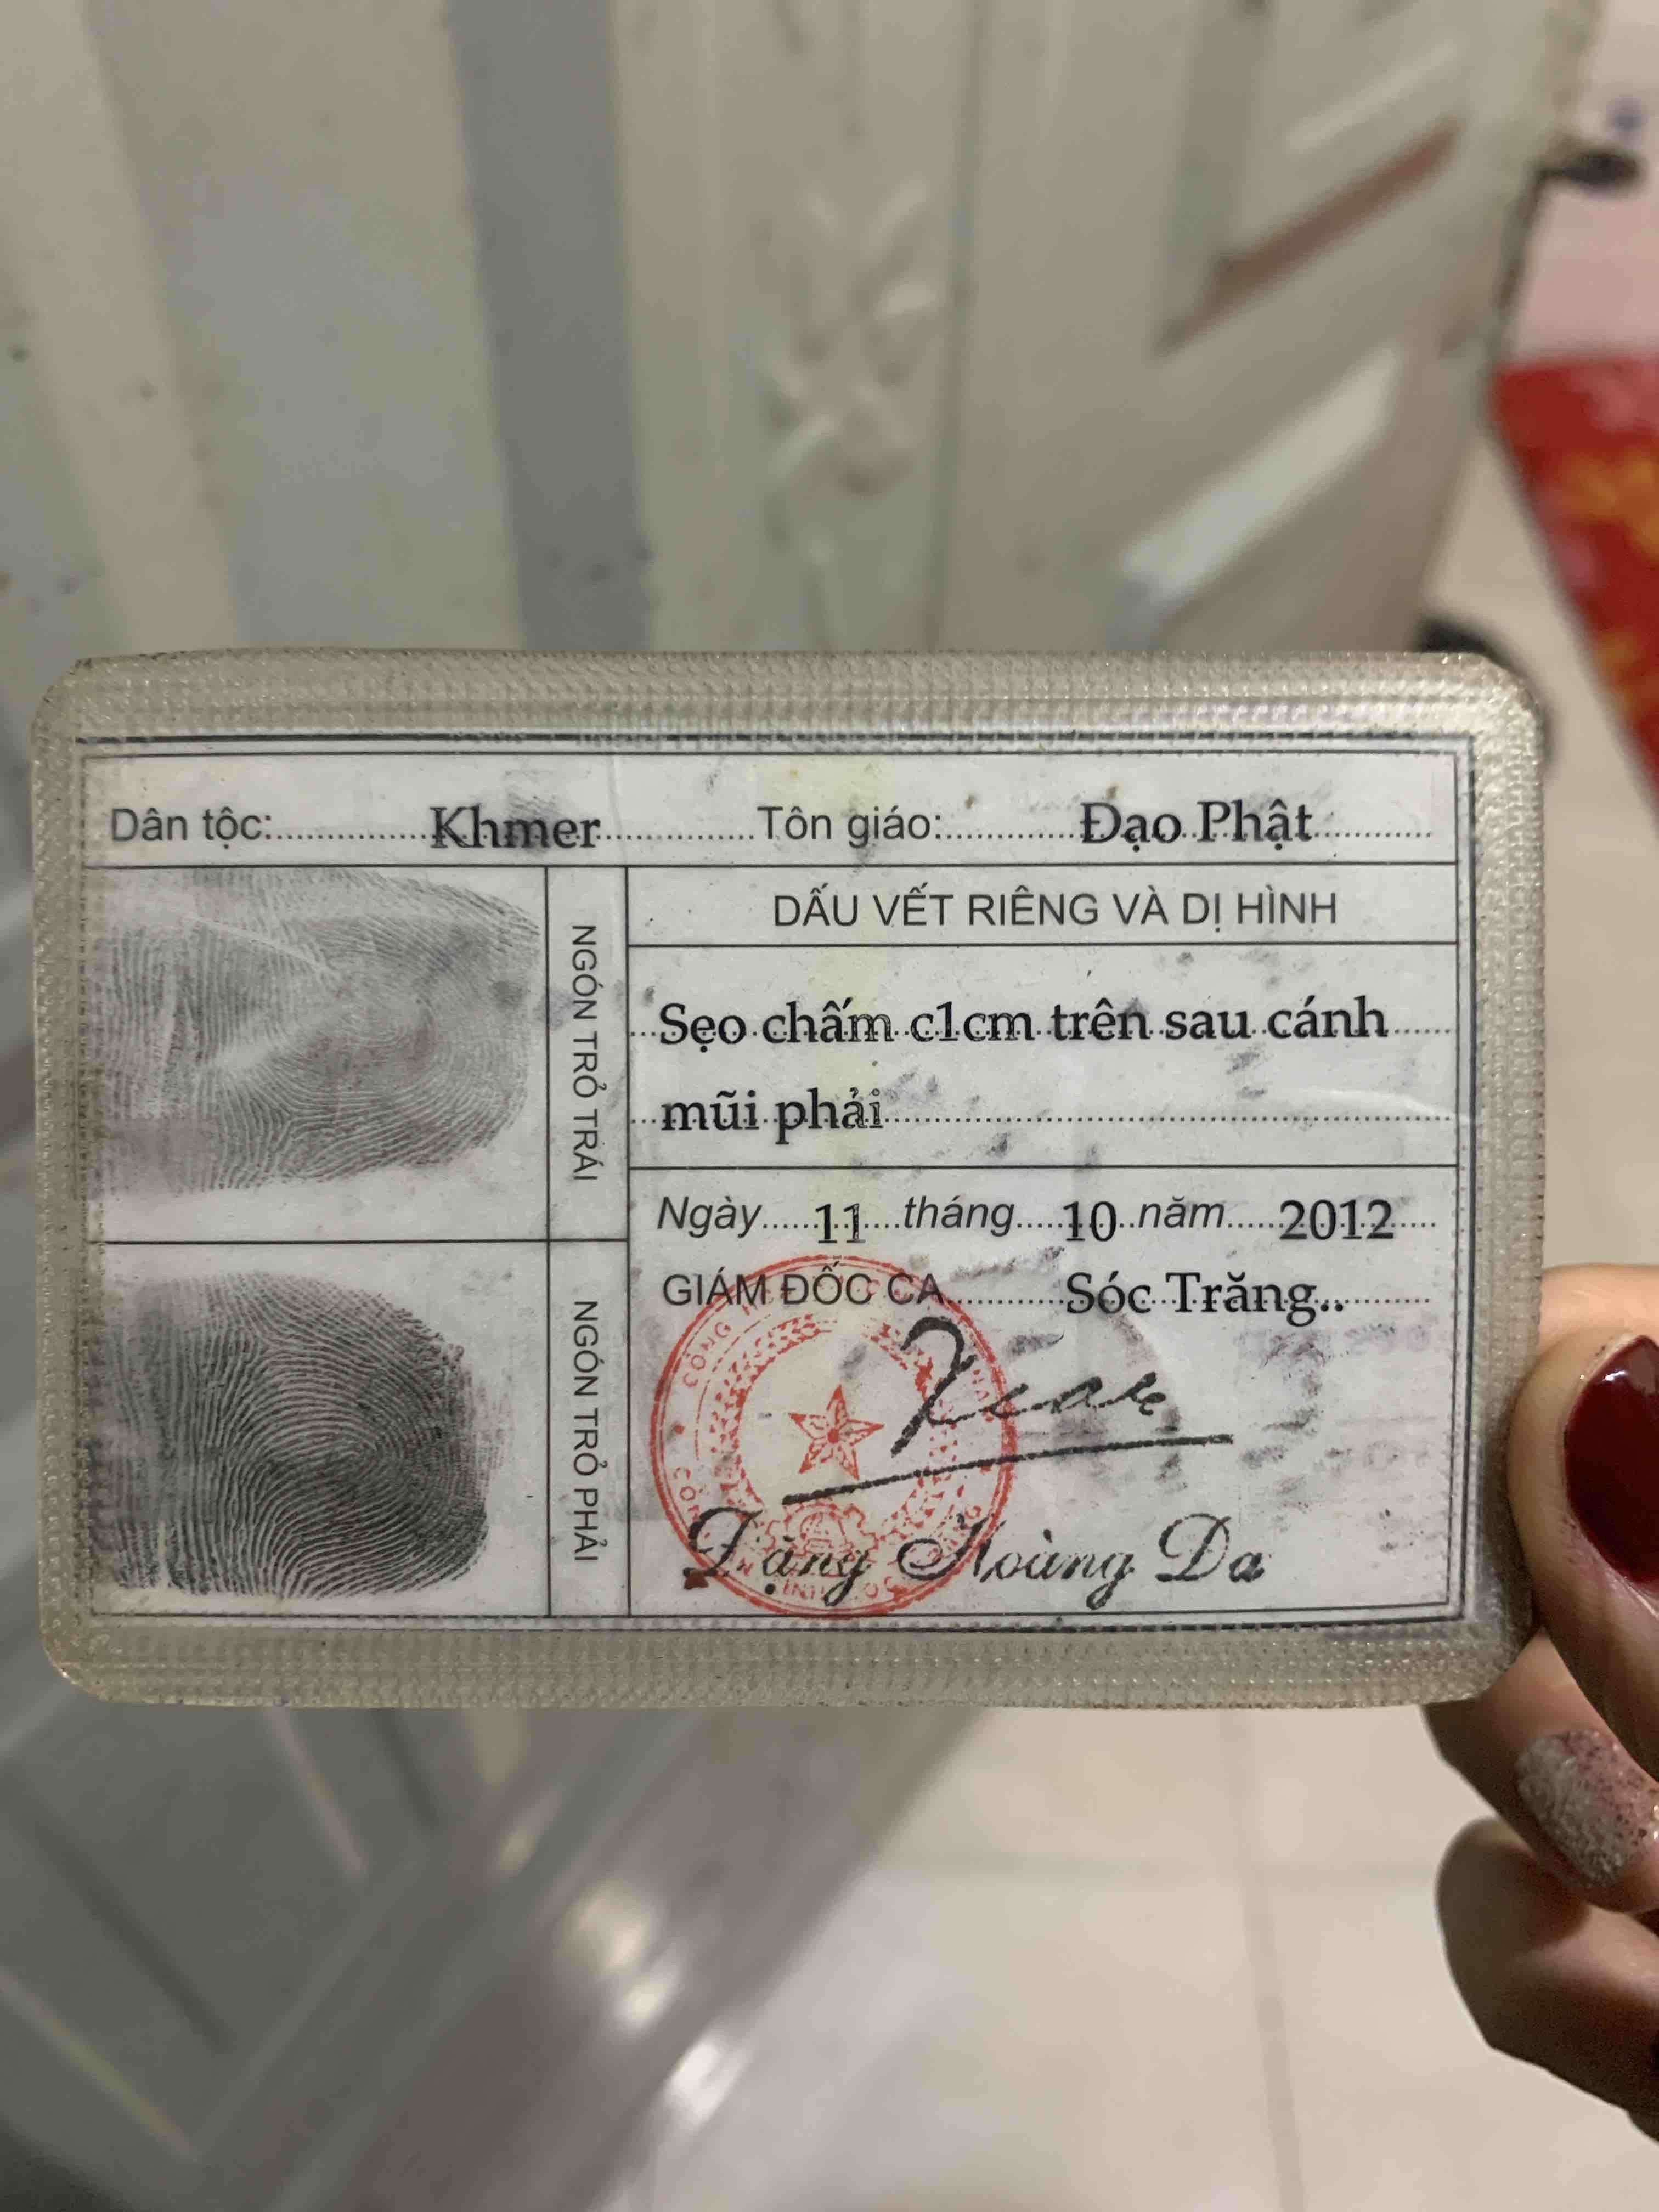 Dân tộc: Khmer Tôn giáo: Đạo Phật
DẤU VẾT RIÊNG VÀ DỊ HÌNH
Sẹo chấm c1cm trên sau cánh
mũi phải
NGÓN TRỎ TRÁI
Ngày 11 tháng 10 năm 2012
GIÁM ĐỐC CA Sóc Trăng..
NGÓN TRỎ PHẢI
Đặng Hoàng Đa